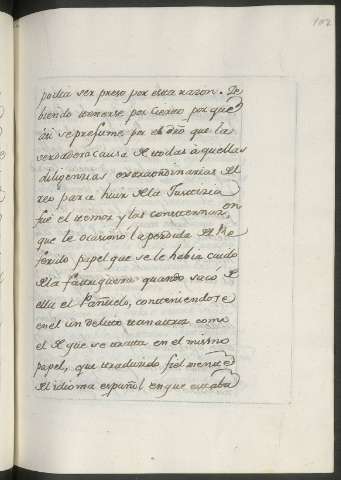 102
podia ser preso por esta razon. De
biendo tenerse por cierto por que
asi se presume por el dro que la
verdadera causa de todas aquellas
diligenzias extraordinarias del
reo para huir de la Justizia
fué el temor y la consternazon, en
que le ocasionó la perdida del Re
ferido papel que se le habia caido
de la faltriquera quando sacó de
ella el Pañuelo, conteniendose
en el un delito tan atroz como
el de que se trata en el mismo
papel, que traducido fiel mente
del idioma español en que estaba